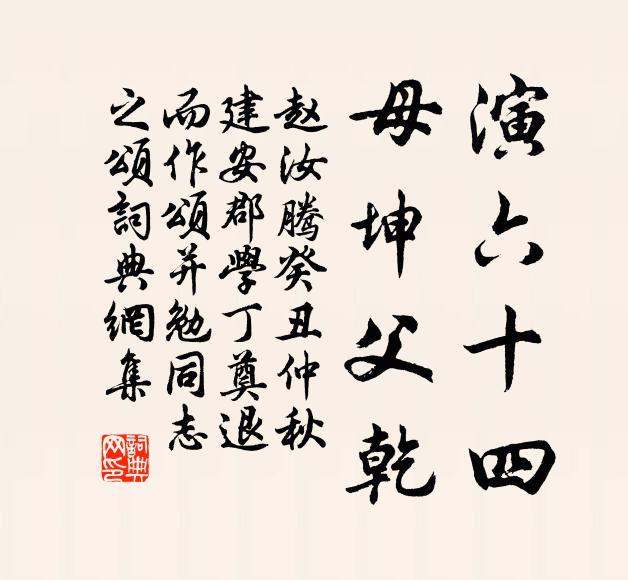 演六十四
母坤父乾
赵汝騰癸丑仲秋
建安郡學丁奠退
而作頌并勉同志
之頌詞典網集
詞典网印